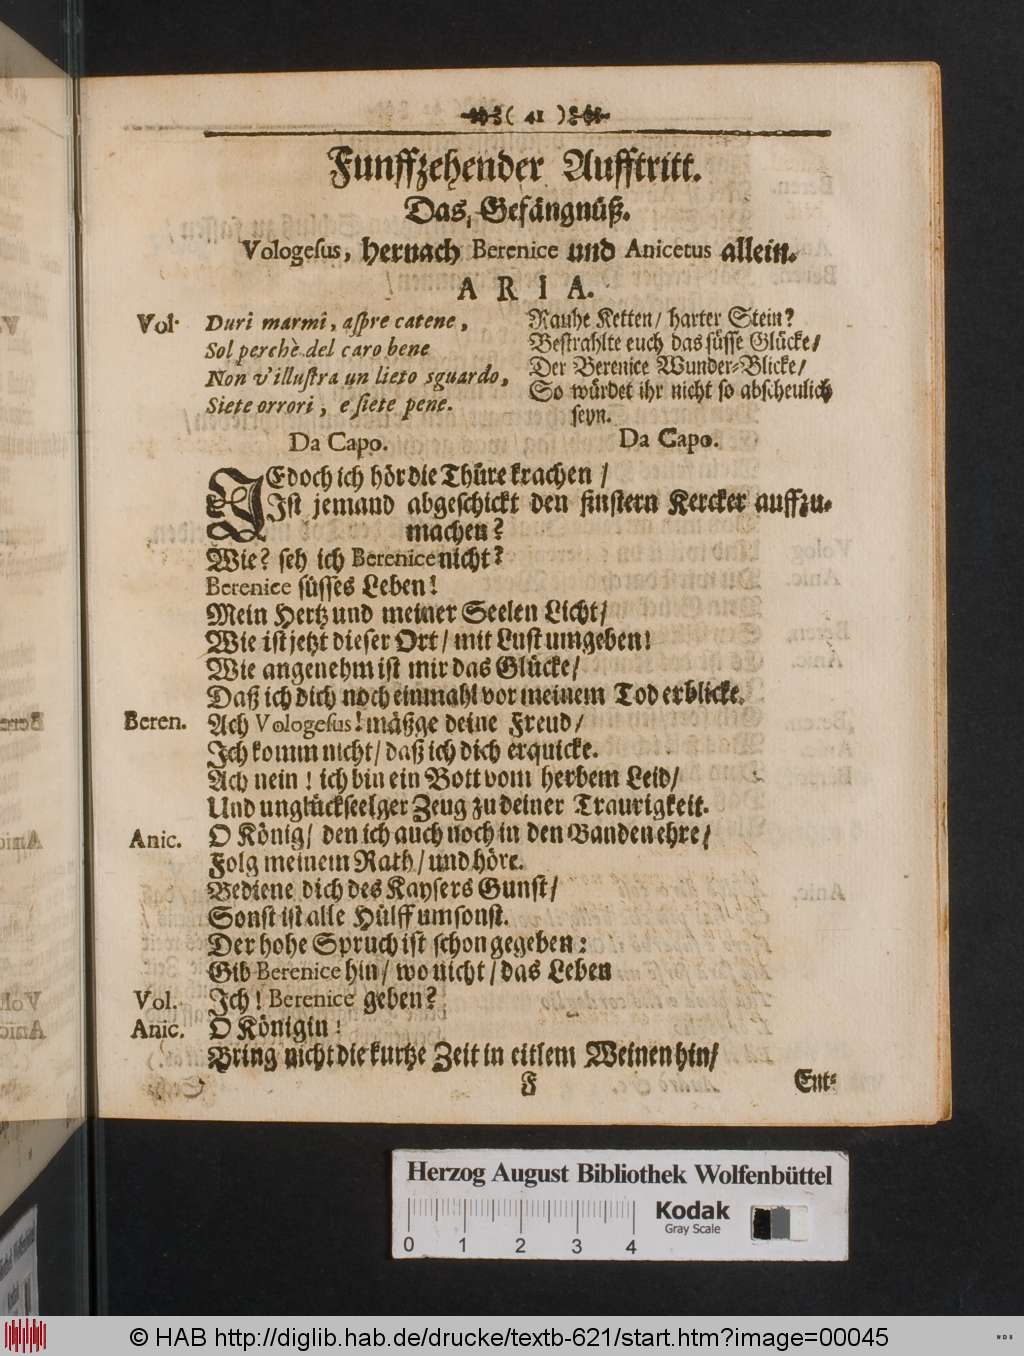 ( 41 )
Funffzehender Aufftritt.
Das Gefängnüß.
Vologesus, hernach Berenice und Anicetus allein.
ARIA.
Vol. Duri marmi, aspre catene,
Sol perchè del caro bene
Non v'illustra un lieto sguardo,
Siete orrori, e siete pene.
Da Capo.
Rauhe Ketten/ harter Stein?
Bestrahlte euch das süsse Glücke/
Der Berenice Wunder-Blicke/
So würdet ihr nicht so abscheulich
seyn.
Da Capo.
JEdoch ich hör die Thüre krachen/
Ist jemand abgeschickt den finstern Kercker auffzu-
machen?
Wie? seh ich Berenice nicht?
Berenice süsses Leben!
Mein Hertz und meiner Seelen Licht/
Wie ist jetzt dieser Ort/ mit Lust umgeben!
Wie angenehm ist mir das Glücke/
Daß ich dich noch einmahl vor meinem Tod erblicke.
Beren. Ach Vologesus! mäßge deine Freud/
Ich komm nicht/ daß ich dich erquicke.
Ach nein! ich bin ein Bott vom herbem Leid/
Und unglückseelger Zeug zu deiner Traurigkeit.
Anic. O König/ den ich auch noch in den Banden ehre/
Folg meinem Rath/ und höre.
Bediene dich des Kaysers Gunst/
Sonst ist alle Hülff umsonst.
Der hohe Spruch ist schon gegeben:
Gib Berenice hin/ wo nicht/ das Leben
Vol. Ich! Berenice geben?
Anic. O Königin!
Bring nicht die kurtze Zeit in eitlem Weinen hin/
F Ent-
Herzog August Bibliothek Wolfenbüttel
Kodak
Gray Scale
0 1 2 3 4
© HAB http://diglib.hab.de/drucke/textb-621/start.htm?image=00045
WDB